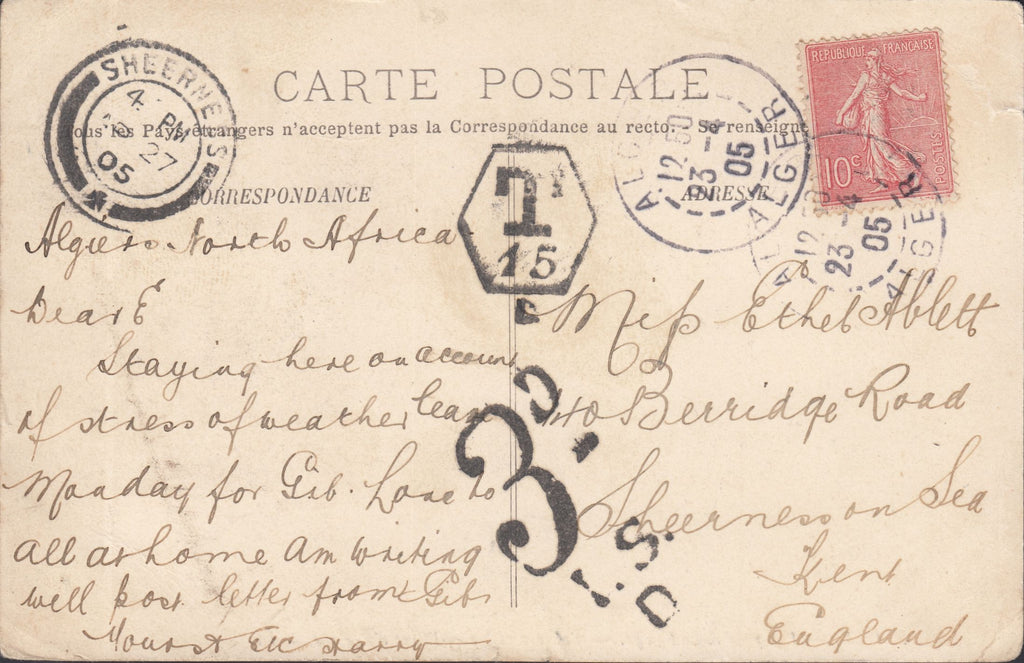 CARTE POSTALE
Tous les Pays étrangers n'acceptent pas la Correspondance au recto. Se renseigne
CORRESPONDANCE
ADRESSE
SHEERNESS
4 PM
27
05
T
15
ALGER
12 50
23 -4
05
ALGER
12
23 -4
05
ALGER
REPUBLIQUE FRANÇAISE
10c
POSTES
3D.
I.S.
D
Algiers North Africa
Dear E
Staying here on account
of stress of weather lean
Monday for Gib. Love to
all at home am writing
well post letter from Gib
Yours Etc Harry
Miss Ethel Ablett
40 Berridge Road
Sheerness on Sea
Kent
England